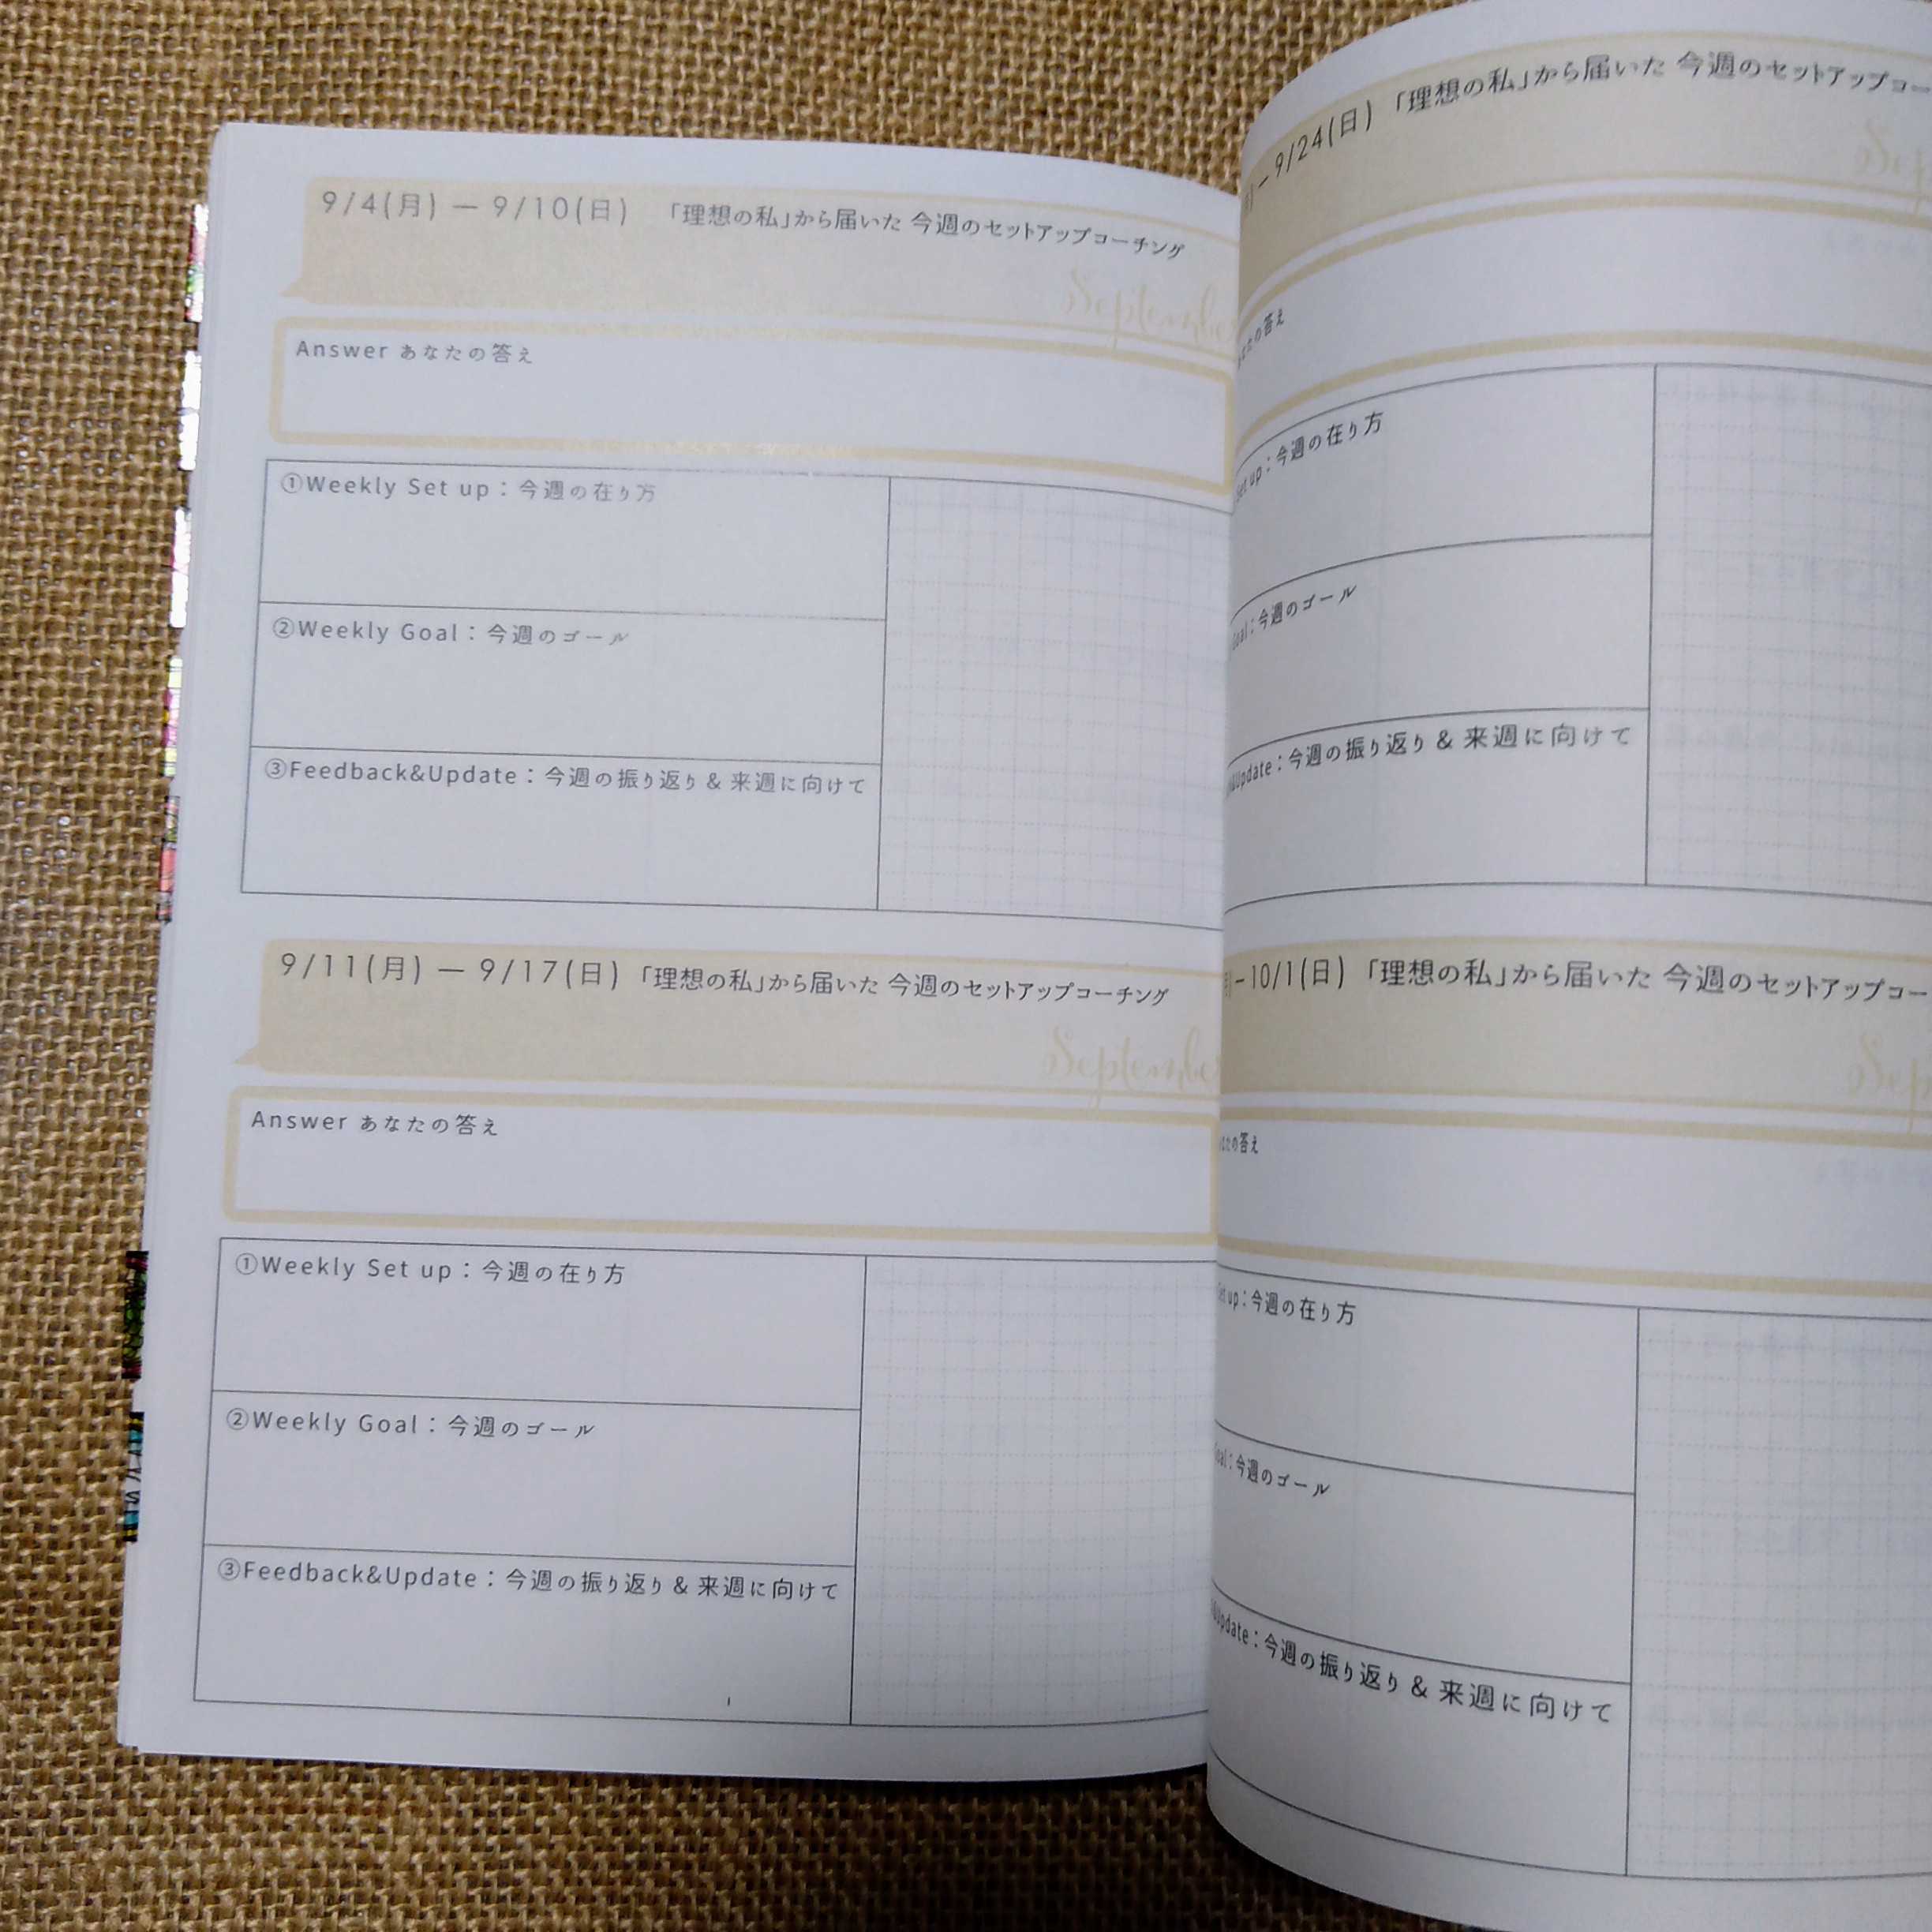 9/4(月) — 9/10(日) 「理想の私」から届いた 今週のセットアップコーチング
September
Answer あなたの答え
①Weekly Set up：今週の在り方
②Weekly Goal：今週のゴール
③Feedback&Update：今週の振り返り & 来週に向けて
9/11(月) — 9/17(日) 「理想の私」から届いた 今週のセットアップコーチング
September
Answer あなたの答え
①Weekly Set up：今週の在り方
②Weekly Goal：今週のゴール
③Feedback&Update：今週の振り返り & 来週に向けて
— 9/24(日) 「理想の私」から届いた 今週のセットアップコー
Sep
の答え
Set up：今週の在り方
Goal：今週のゴール
&Update：今週の振り返り & 来週に向けて
–10/1(日) 「理想の私」から届いた 今週のセットアップコー
Sep
の答え
Set up：今週の在り方
oal：今週のゴール
&Update：今週の振り返り & 来週に向けて